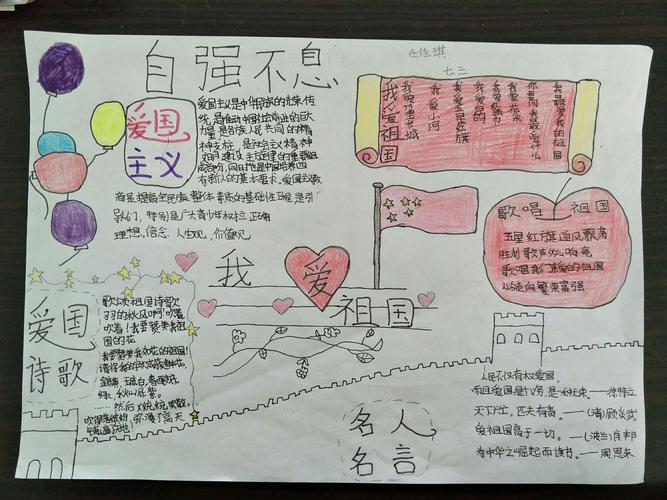 自强不息
任佳琪
七三
爱国
主义
爱国主义是中华民族的光荣传
统,是推动中国社会前进的巨大
力量,是各族人民共同的精
神支柱,是社会主义精神
文明建设主旋律的重要组
成部分,同时也是中国培养四
有新人的基本要求。爱国主义教
育是提高全民族整体素质的基础性工程,是引
导人们,特别是广大青少年树立正确
理想、信念、人生观、价值观
我爱祖国
我爱黄土长城
我爱小河
我爱五星红旗
我爱
我爱
我爱花朵
你要问我最爱什么
我最爱我的祖国
歌唱祖国
五星红旗迎风飘扬
胜利歌声多么响亮
歌唱我们亲爱的祖国
从今走向繁荣富强
我爱祖国
爱国
诗歌
歌颂祖国诗歌
的秋风啊!吹
吹着!我要赞美我祖
国的花
我要赞美我如花的祖国!
绿、秋山
名人
名言
人民不仅有权爱国,
而且爱国是个义务,是一种光荣。——徐特立
天下兴亡,匹夫有责。——(清)顾炎武
爱祖国高于一切。——(波兰)肖邦
为中华之崛起而读书。——周恩来